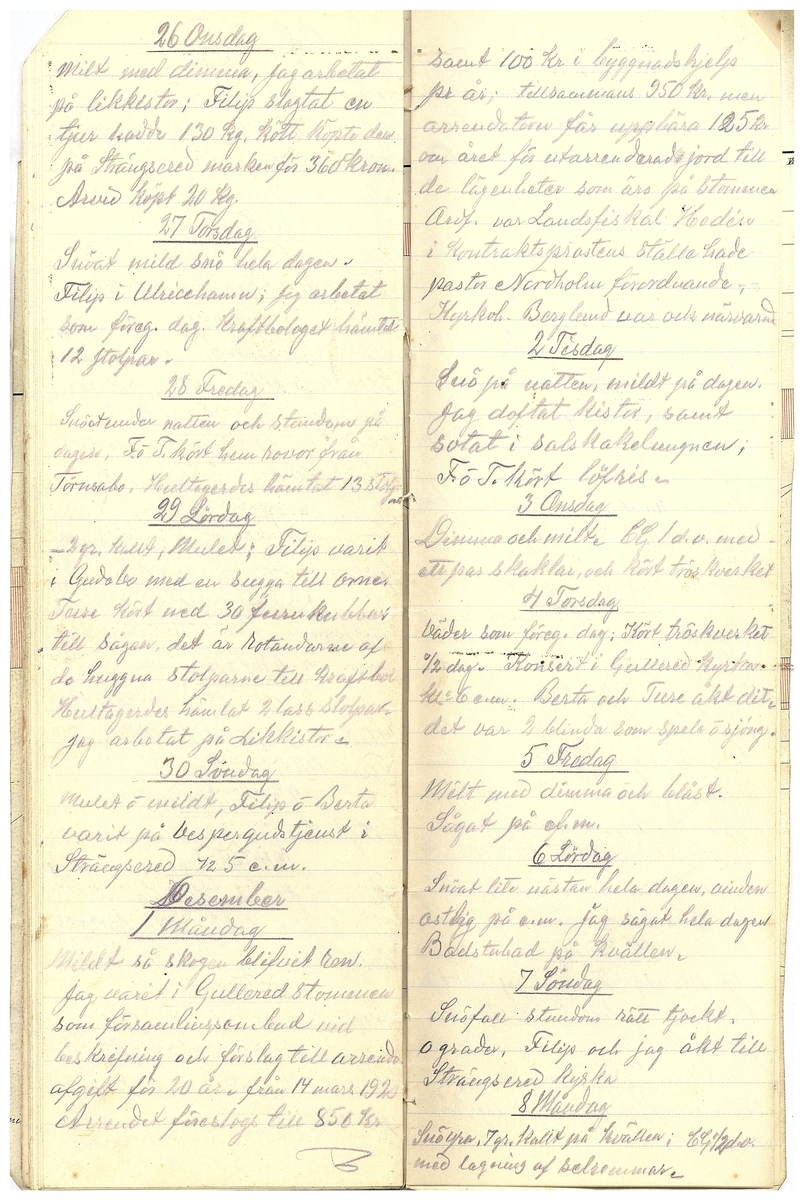 26 Onsdag
Milt med dimma, jag arbetat
på likkistor; Filip slagtat en
tjur hadde 130 kg. kött köpte den
på Strängsered marken för 360 kron.
Arvid köpt 20 kg.
27 Torsdag
Snöat mild snö hela dagen.
Filip i Ulricehamn; jag arbetat
som föreg. dag. Kraftbolaget hämtat
12 stolpar.
28 Fredag
Snöat under natten och stundom på
dagen. F. ö T. kört hem rovor från
Törnsabo. Hultagerdes hämtat 13 stolpar
29 Lördag
-2 gr. kallt, Mulet; Filip varit
i Gudabo med en sugga till orne.
Ture kört ned 30 furukubbar
till sågen, det är rotändarne af
de huggna stolparne till kraftbol
Hultagerdes hämtat 2 lass stolpar.
jag arbetat på Likkistor.
30 Söndag
Mulet ö mildt, Filip ö Berta
varit på Vespergudstjenst i
Strängsered kl 5 e.m.
Desember
1 Måndag
Mildt så skogen blifvit ren.
Jag varit i Gullered Stommen
som församlingsombud vid
beskrifning och förslag till arrende
afgift för 20 år. från 14 mars 192
Arrendet föreslogs till 850 Kr
samt 100 Kr i byggnadshjelp
pr år; tillsammans 950 Kr. men
arrendatorn får uppbära 125 Kr
om året för utarrenderad jord till
de lägenheter som äro på Stommen
Ordf. var Landsfiskal Hedén
i Kontraktsprostens ställe hade
pastor Nordholm förordnande,
Kyrkoh. Berglund var och närvarande
2 Tisdag
Snö på natten, mildt på dagen.
Jag doftat kistor, samt
sotat i salskakelungnen;
F. ö T. kört löfris.
3 Onsdag
Dimma och milt. CG 1 d.v. med
ett par skaklar, och kört tröskverket
4 Torsdag
Väder som föreg. dag; Kört tröskverket
1/2 dag. Konsert i Gullered kyrka.
kl. 6 e.m. Berta och Ture åkt dit,
det var 2 blinda som spela ö sjöng.
5 Fredag
Milt med dimma och blåst.
Sågat på ef.m.
6 Lördag
Snöat lite nästan hela dagen, vinden
ostlig på e.m. Jag sågat hela dagen
Badstubad på kvällen.
7 Söndag
Snöfall stundom rätt tjockt.
0 grader, Filip och jag åkt till
Strängsered kyrka
8 Måndag
Snöyra, 7 gr. kallt på kvällen; CG 1/2 d.v.
med lagning af selremmar.